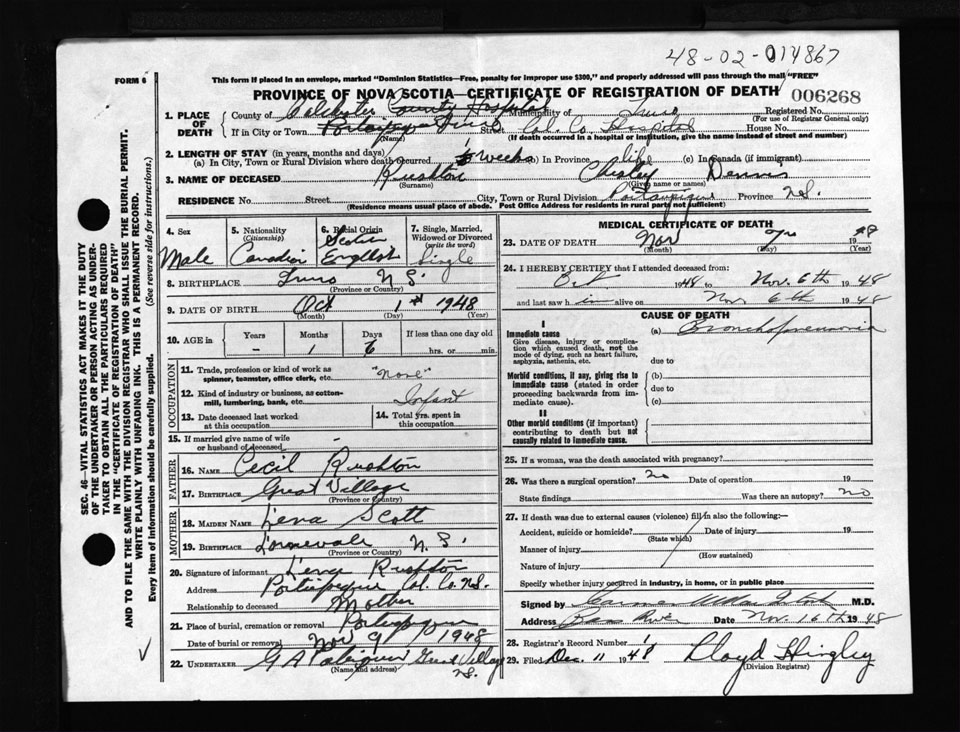 48-02-014867
FORM 6
This form if placed in an envelope, marked "Dominion Statistics—Free, penalty for improper use $300," and properly addressed will pass through the mail "FREE"
PROVINCE OF NOVA SCOTIA—CERTIFICATE OF REGISTRATION OF DEATH
006268
1. PLACE OF DEATH
County of Colchester County Hospital Municipality of Truro Registered No.
(For use of Registrar General only)
If in City or Town Portaupique Truro Street Col. Co. Hospital House No.
(Name) (If death occurred in a hospital or institution, give the name instead of street and number)
2. LENGTH OF STAY (in years, months and days)
(a) In City, Town or Rural Division where death occurred weeks (b) In Province life (c) In Canada (if immigrant)
3. NAME OF DECEASED Rushton Chesley Dennis
(Surname) (Given name or names)
RESIDENCE No. Street City, Town or Rural Division Portaupique Province N.S.
(Residence means usual place of abode. Post Office Address for residents in rural parts not sufficient)
4. Sex
Male
5. Nationality
(Citizenship)
Canadian
6. Racial Origin
Scotch
English
7. Single, Married, Widowed or Divorced
(write the word)
Single
8. BIRTHPLACE Truro N.S.
(Province or Country)
9. DATE OF BIRTH Oct 1st 1948
(Month) (Day) (Year)
10. AGE in
Years Months Days If less than one day old
- 1 6 hrs. or min.
OCCUPATION
11. Trade, profession or kind of work as spinner, teamster, office clerk, etc. "None"
12. Kind of industry or business, as cotton-mill, lumbering, bank, etc. Infant
13. Date deceased last worked at this occupation
14. Total yrs. spent in this occupation
15. If married give name of wife or husband of deceased
FATHER
16. NAME Cecil Rushton
17. BIRTHPLACE Great Village
(Province or Country)
MOTHER
18. MAIDEN NAME Lena Scott
19. BIRTHPLACE Lornevale N.S.
(Province or Country)
20. Signature of informant Lena Rushton
Address Portaupique Col. Co. N.S.
Relationship to deceased Mother
21. Place of burial, cremation or removal Portaupique
Date of burial or removal Nov 9 1948
22. UNDERTAKER G A Great Village
(Name and address) N.S.
MEDICAL CERTIFICATE OF DEATH
23. DATE OF DEATH Nov 7th 1948
(Month) (Day) (Year)
24. I HEREBY CERTIFY that I attended deceased from:
Oct 1948 to Nov. 6th 1948
and last saw him alive on Nov 6th 1948
CAUSE OF DEATH
I
Immediate cause (a) Bronchopneumonia
Give disease, injury or complication which caused death, not the mode of dying, such as heart failure, asphyxia, asthenia, etc.
due to
Morbid conditions, if any, giving rise to immediate cause (stated in order proceeding backwards from immediate cause).
(b)
due to
(c)
II
Other morbid conditions (if important) contributing to death but not causally related to immediate cause.
25. If a woman, was the death associated with pregnancy?
26. Was there a surgical operation? no Date of operation 19
State findings Was there an autopsy? no
27. If death was due to external causes (violence) fill in also the following:—
Accident, suicide or homicide? Date of injury 19
(State which)
Manner of injury
(How sustained)
Nature of injury
Specify whether injury occurred in industry, in home, or in public place
Signed by M.D.
Address Bass River Date Nov. 16th 1948
28. Registrar's Record Number 1
29. Filed Dec. 11 1948 Lloyd Hingley
(Division Registrar)
SEC. 46—VITAL STATISTICS ACT MAKES IT THE DUTY
OF THE UNDERTAKER OR PERSON ACTING AS UNDER-
TAKER TO OBTAIN ALL THE PARTICULARS REQUIRED
IN THE "CERTIFICATE OF REGISTRATION OF DEATH"
AND TO FILE THE SAME WITH THE DIVISION REGISTRAR WHO SHALL ISSUE THE BURIAL PERMIT.
WRITE PLAINLY WITH UNFADING INK. THIS IS A PERMANENT RECORD.
Every item of information should be carefully supplied. (See reverse side for instructions.)